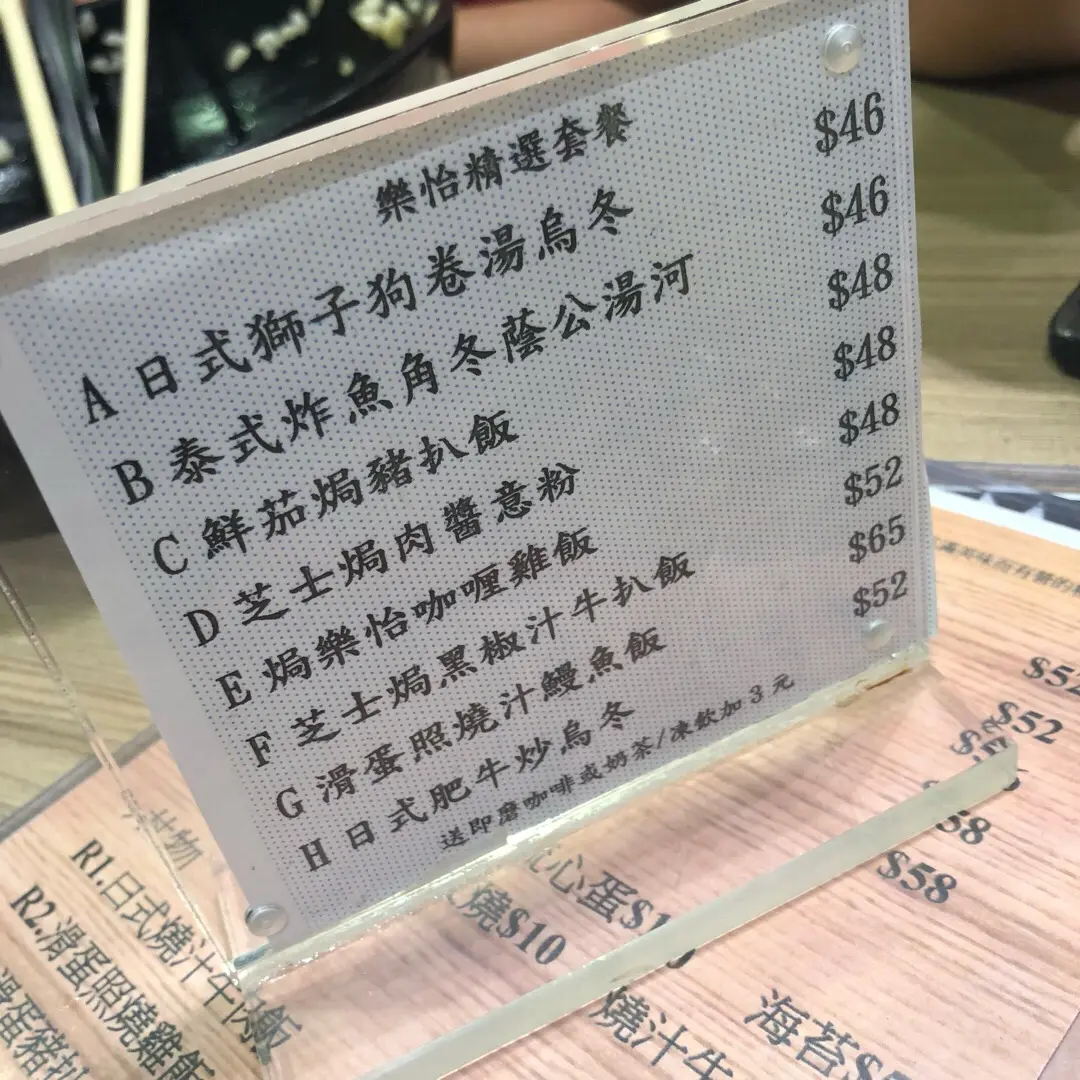 樂怡精選套餐
A 日式獅子狗卷湯烏冬 $46
B 泰式炸魚角冬蔭公湯河 $46
C 鮮茄焗豬扒飯 $48
D 芝士焗肉醬意粉 $48
E 焗樂怡咖喱雞飯 $48
F 芝士焗黑椒汁牛扒飯 $52
G 滑蛋照燒汁鰻魚飯 $65
H 日式肥牛炒烏冬 $52
送即磨咖啡或奶茶/凍飲加3元
$52
$58
心蛋$1
燒$10
R1.日式燒汁牛
飯
R2.滑蛋照燒雞飯
滑蛋豬扒
燒汁牛
海苔$